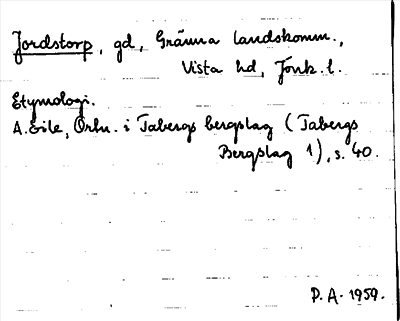 Jordstorp, gd, Gränna landskomm.,
Vista hd, Jönk. l.
Etymologi.
A. Eile, Ortn. i Tabergs bergslag (Tabergs
Bergslag 1), s. 40.
P. A. 1959.